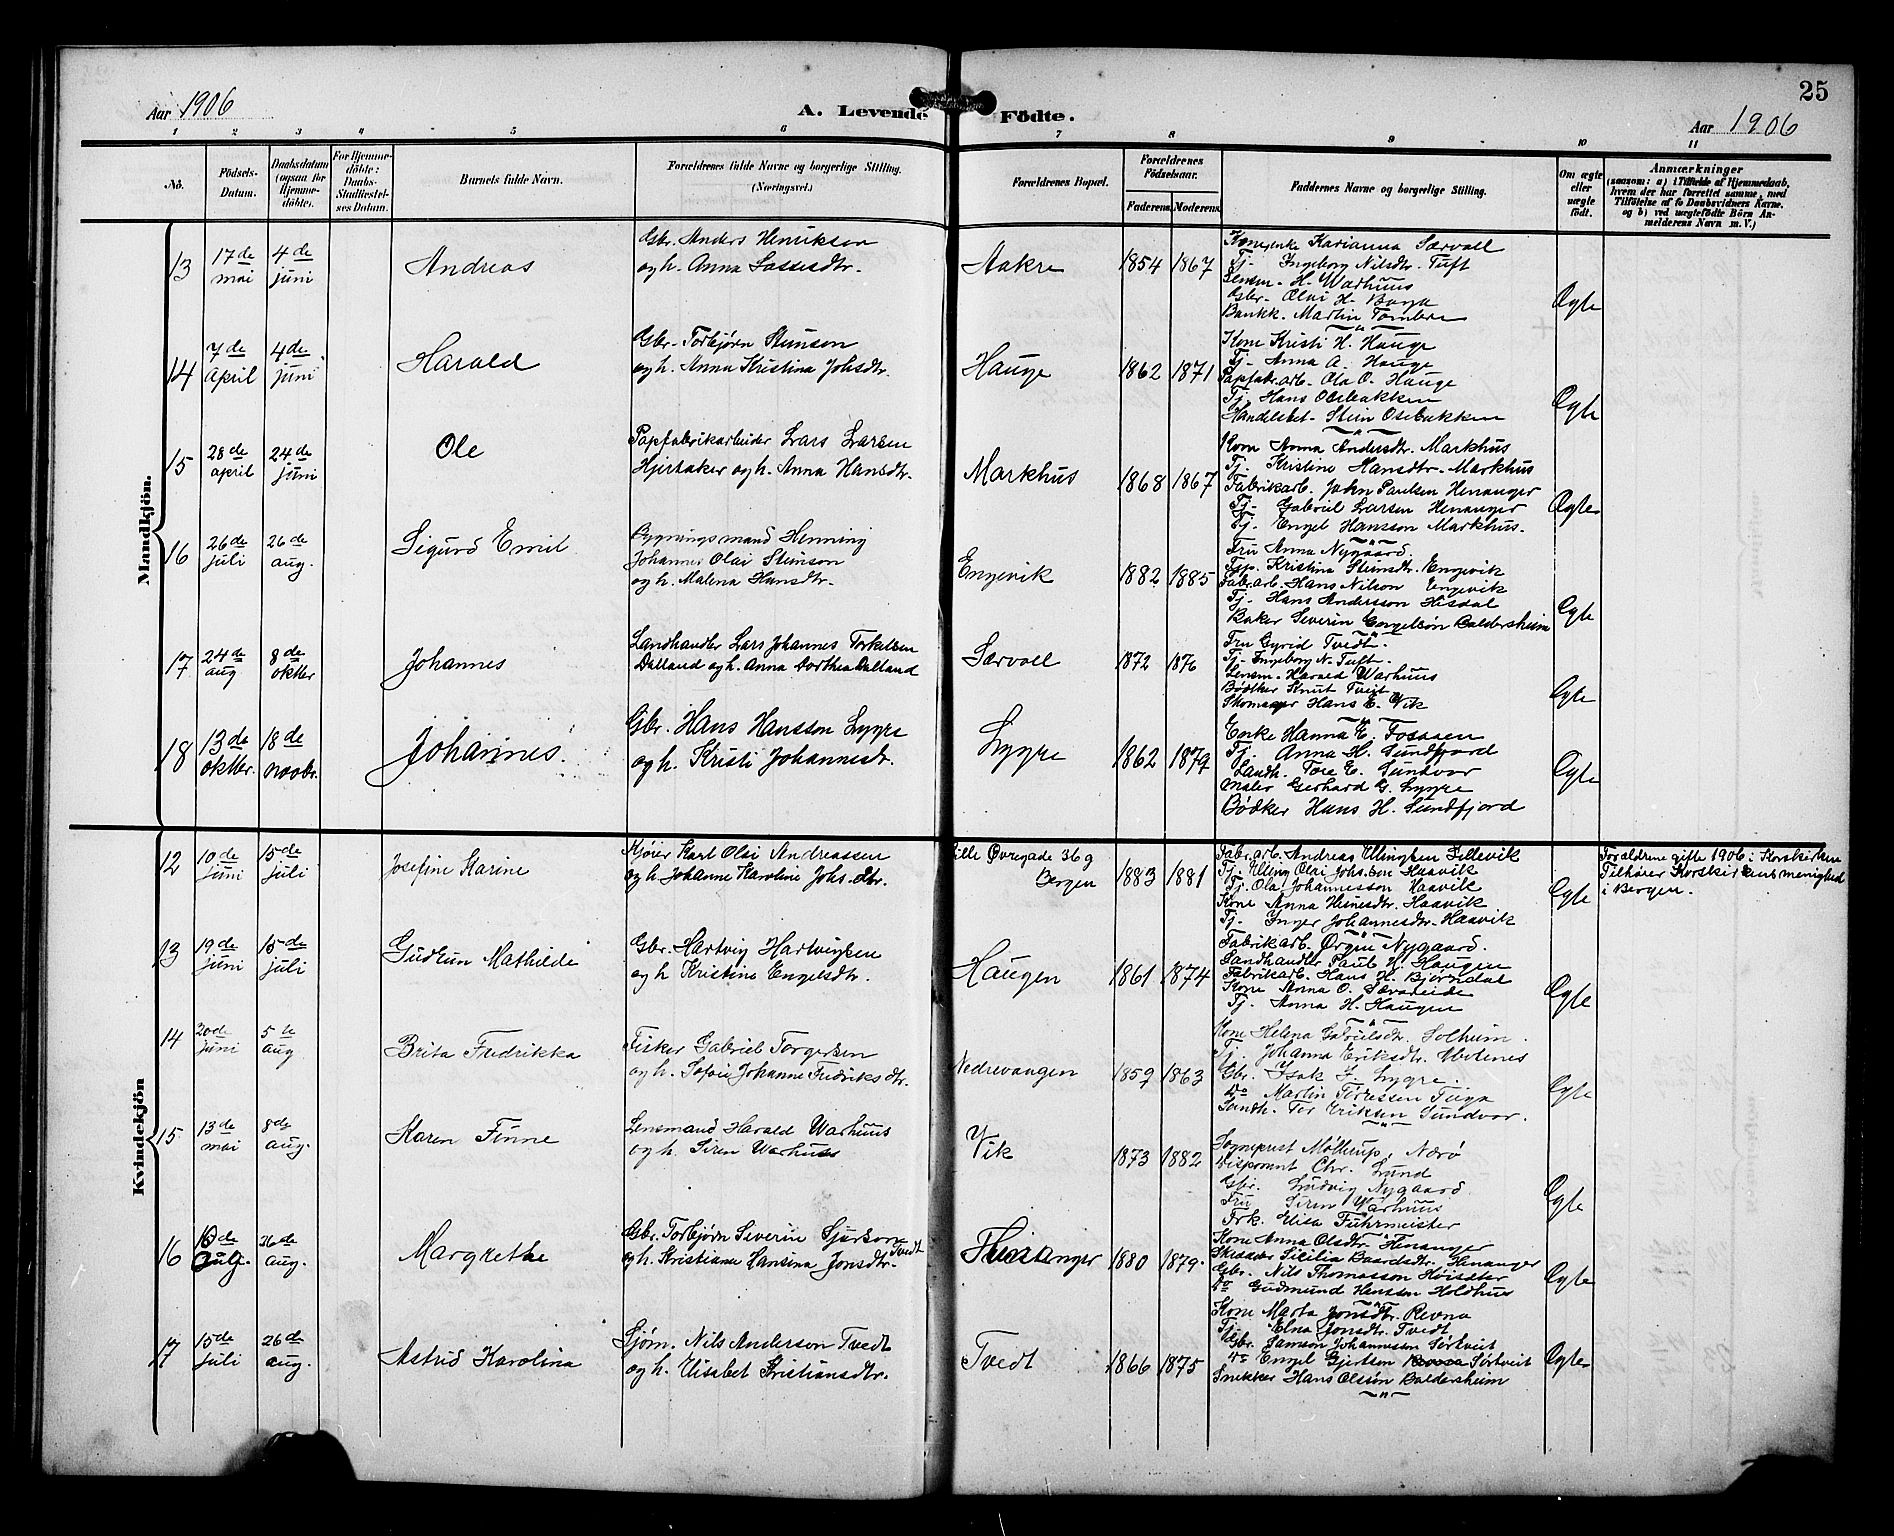 25
Aar 1906
A. Levende Födte.
Aar 1906
1 2 3 4 5 6 7 8 9 10 11
No.
Födsels-Datum.
Daabsdatum (ogsaa for Hjemme-döbte).
For Hjemme-döbte: Daabs-Stadfæstel-ses Datum.
Barnets fulde Navn.
Forældrenes fulde Navne og borgerlige Stilling.
(Næringsvei.)
Forældrenes Bopæl.
Forældrenes Födselsaar.
Faderens. Moderens.
Faddernes Navne og borgerlige Stilling.
Om ægte eller uægte födt.
Anmærkninger
(saasom: a) i Tilfælde af Hjemmedaab,
hvem der har forrettet samme, med
Tilföielse af to Daabsvidners Navne,
og b) ved uægtefödte Börn An-
melderens Navn m. V.)
Mandkjön.
13 17de mai 4de juni Andreas
Gbr. Anders Henrikson
og h. Anna Lassesdtr.
Aakre 1854 1867
Karianna Særvoll
Tj. Ingeborg Nilsdtr. Tuft
Lensm. H. Warhuus
Gbr. Olai H. Borga
Bankk. Martin Tombre
Ægte
14 7de april 4de juni Harald
Gbr. Torbjørn Stenson
og h. Anna Kristina Johsdtr.
Hauge 1862 1871
Kone Kristi H. Hauge
Tj. Anna A. Hauge
Papfabr.arb. Ola O. Hauge
Tj. Hans Osebakken
Handelsbet. Stein Osebakken
Ægte
15 28de april 24de juni Ole
Papfabrikarbeider Lars Larsen
Hjertaker og h. Anna Hansdtr.
Markhus 1868 1867
Kone Anna Andersdtr. Markhus
Tj. Kristine Hansdtr. Markhus
Fabrikarb. John Paulsen Henanger
Tj. Gabriel Larsen Henanger
Tj. Engel Hansson Markhus.
Ægte
16 26de juli 26de aug. Sigurd Emil
Bygningsmand Henning
Johannes Olai Stenson
og h. Malena Hansdtr.
Engevik 1882 1885
Fru Anna Nygaard.
Kristina Stensdtr. Engevik
Fabr.arb. Hans Nilson Engevik
Tj. Hans Andersson Hisdal
Baker Severin Engelsön Baldersheim
Ægte
17 24de aug 8de oktbr Johannes
Landhandler Lars Johannes Torkelsen
Dalland og h. Anna Dorthea Dalland
Særvoll 1872 1876
Fru Gyrid Tvedt.
Tj. Ingeborg N. Tuft.
Lensm. Harald Warhuus
Bødker Knut Tveit
Skomager Hans E. Vik
Ægte
18 13de oktbr. 18de novbr. Johannes.
Gbr. Hans Hansson Lygre
og h. Kristi Johannesdtr.
Lygre 1862 1879
Enke Hanna E. Fossen
Tj. Anna H. Sundfjord
Landh. Tore E. Sundvor
Maler Gerhard G. Lygre
Bødker Hans H. Sundfjord
Ægte
Kvindekjön
12 10de juni 15de juli Josefine Karine
Kjører Karl Olai Andreassen
og h. Johanne Karoline Johs.dtr.
Lille Øvregade 36g
Bergen
1883 1881
Fabr.arb. Andreas Ellingsen Lillevik
Tj. Elling Olai Johs.sen Haavik
Tj. Ola Johannesson Haavik
Kone Anna Heinesdtr. Haavik
Tj. Inger Johannesdtr. Haavik
Ægte
Forældrene gifte 1906 i Korskirken
Tilhører Korskirkens menighed
i Bergen.
13 19de juni 15de juli Gudrun Mathilde
Gbr. Hartvig Hartvigsen
og h. Kristina Engelsdtr.
Haugen 1861 1874
Fabrikarb. Ørgen Nygaard.
Landhandler Paul H. Haugen
Fabrikarb. Hans H. Bjørndal
Kone Anna O. Sævareide
Tj. Anna H. Haugen
Ægte
14 20de juni 5te aug Brita Fredrikka
Fisker Gabriel Torgersen
og h. Sofie Johanne Fredriksdtr.
Nedrevangen 1859 1863
Kone Helena Gabrielsdtr. Solheim.
Tj. Johanna Eriksdtr.
Gbr. Isak J. Lygre.
Do Martin Torressen Teige
Landh. Tor Eriksen Sundvor.
Ægte
15 13de mai 8de aug. Karen Finne
Lensmand Harald Warhuus
og h. Siren Warhuus
Vik 1873 1882
Sogneprest Møllerup, Nærø
Disponent Chr. Lund
Gbr. Ludvig Nygaard
Fru Siren Warhuus
Frk. Elisa Fuhrmeister
Ægte
16 10de Julj. 26de aug. Margrethe
Gbr. Torbjørn Severin Sjurson Tvedt
og h. Kristianna Hansina Jonsdtr.
Henanger 1880 1879.
Kone Anna Olsdtr. Henanger
Sicilia Baardsdtr. Henanger
Gbr. Nils Thomasson Høisæter
Do Gudmund Hansson Holdhus
Ægte
17 15de juli 26de aug. Astrid Karolina
Sjøm. Nils Anderson Tvedt
og h. Elisabet Kristiansdtr.
Tvedt 1866 1875
Kone Marta Jonsdtr. Revna
Tj. Elna Jonsdtr. Tvedt
Gbr. Samson Johannesson Sørtveit
do Engel Gjertson Sørtveit
Snekker Hans Olsson Baldersheim
Ægte